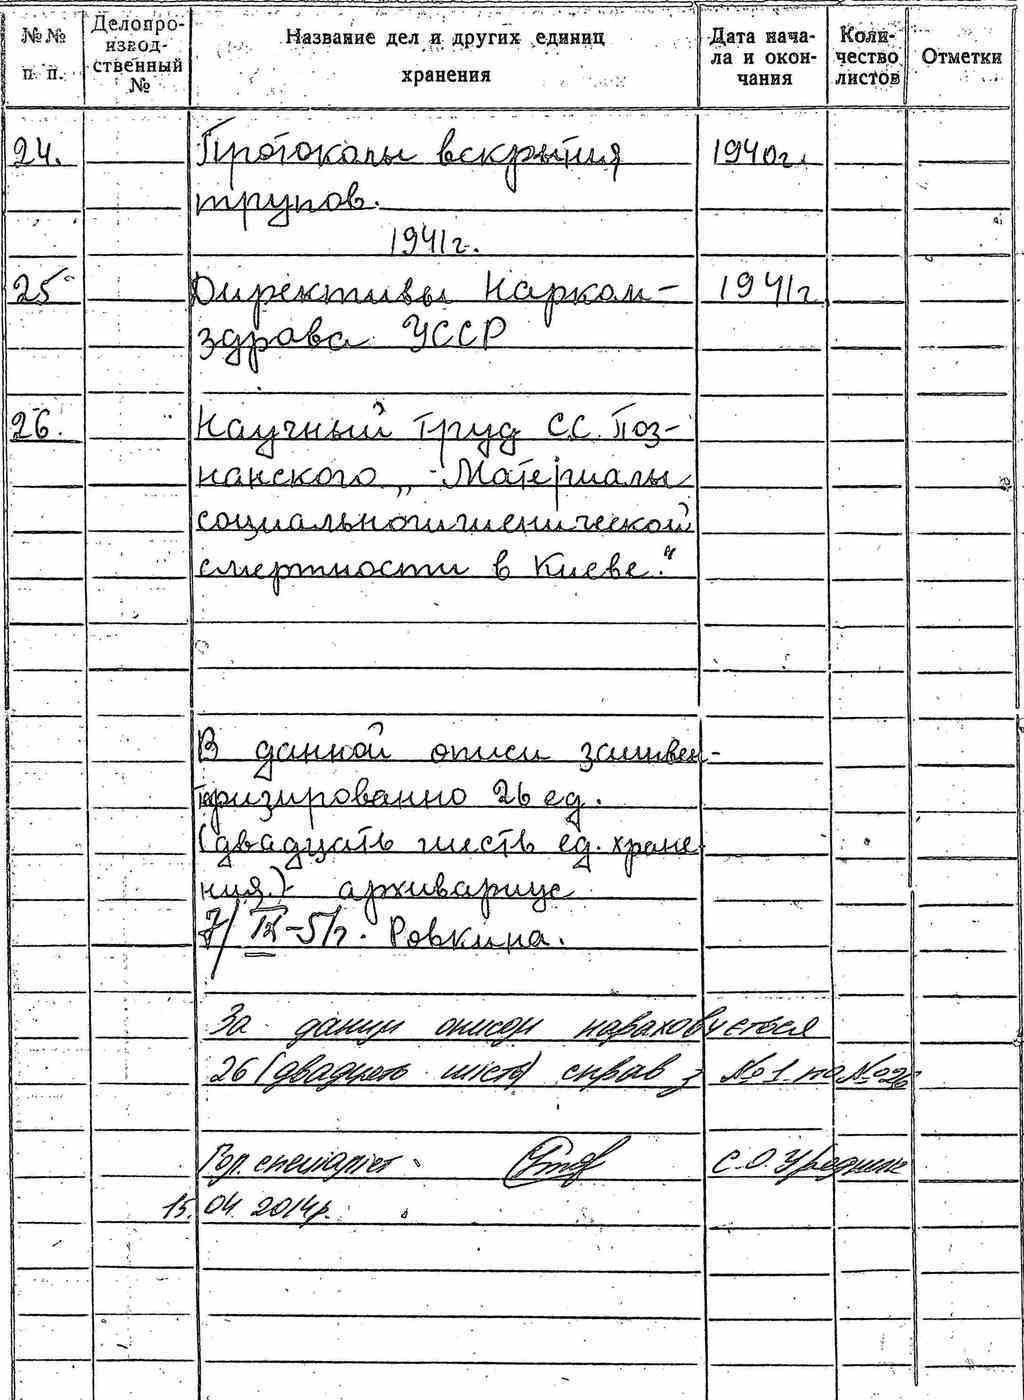 №№ п. п.
Делопро-
извод-
ственный
№
Название дел и других единиц
хранения
Дата нача-
ла и окон-
чания
Коли-
чество
листов
Отметки
24. Протоколы вскрытия 1940г.
трупов.
1941г.
25 Директивы Нарком- 1941г
здрава УССР
26. Научный труд С.С. Поз-
нанского „Материалы
социальногигиенической
смертности в Киеве."
В данной описи заинвен-
таризированно 26 ед.
(двадцать шесть ед. хране
ния.) архивариус
7/IX-51г. Ровкина.
За даним описом нараховується
26 (двадцять шість) справ з №1 по №26
Гол. спеціаліст С.О. Уредник
15.04.2014р.